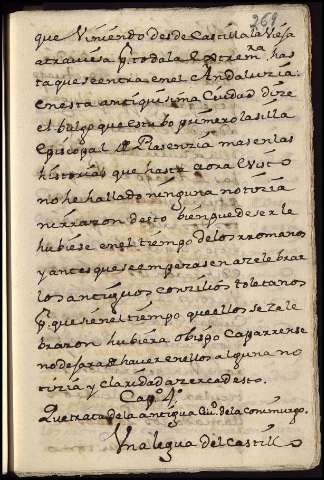 269
que Viniendo desde Castilla la Vieja
atraviesa p. toda la Extrem.ra has
ta que se entra en el Andaluzia.
en esta antiquisima Ciudad dize
el bulgo que estubo primero la silla
Episcopal de Plasenzia mas en las
historias que hasta aora e visto
no he hallado ninguna notizia
ni rrazon desto bien puede ser le
hubiese en el tiempo de los rromanos
y antes que se empezasen a zelebrar
los antiguos conzilios toletanos
p. que si en el tiempo que ellos se zele
braron hubiera obispo Caparrense
no dejara de haver en ellos alguna no
tizia y claridad azerca desto.
Cap.o 4.o
Que trata de la antigua Ciu.d de la Commurgo.
Una legua del Castillo